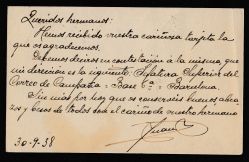 Queridos hermanos:
Hemos recibido vuestra cariñosa tarjeta la
que os agradecemos.
Debemos deciros en contestación a la misma, que
mi dirección es la siguiente: Jefatura Superior del
Correo de Campaña = Base 6ª = Barcelona.
Sin más por hoy que os conservéis buenos abra
zos y besos de todos será el cariño de vuestro hermano
Juan
30-9-38